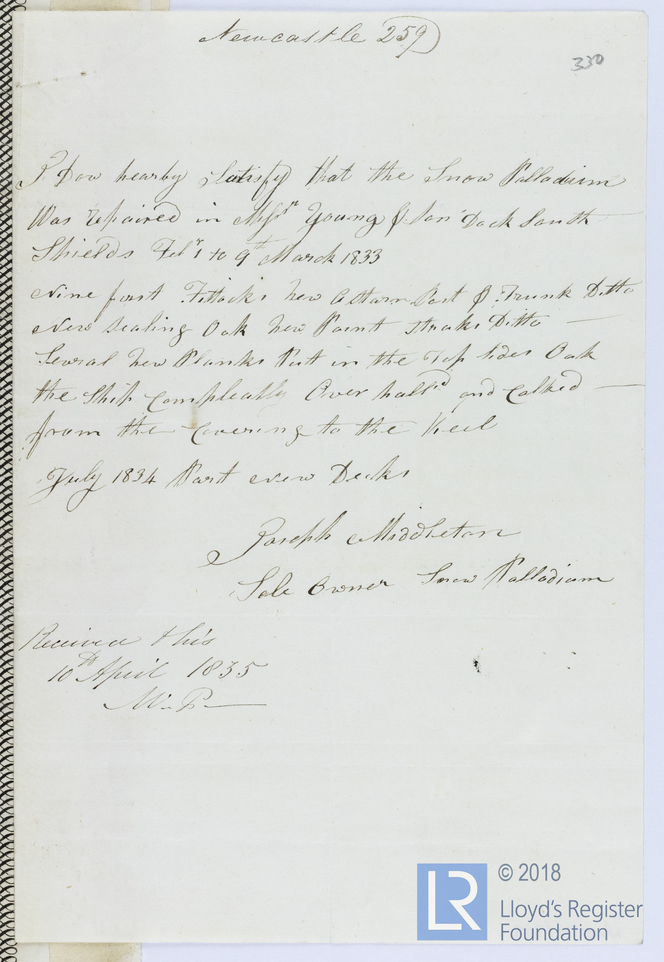 Newcastle 259
330
I Dow hearby sattisfy that the Snow Palladium
Was repaired in Messrs Young & Son Dock South
Shields Feby 1 to 9th March 1833
Nine foot Futtocks New a Starn Post & Trunk Ditto
New sealing Oak New Paint Straks Ditto
Several New Planks Put in the Top Sides Oak
the Ship Compleatly Over halld and Calked
from the Covering to the Keel
July 1834 Part New Decks
Joseph Middleton
Sole Owner Snow Palladium
Received this
10th April 1835
© 2018
LR
Lloyd's Register
Foundation